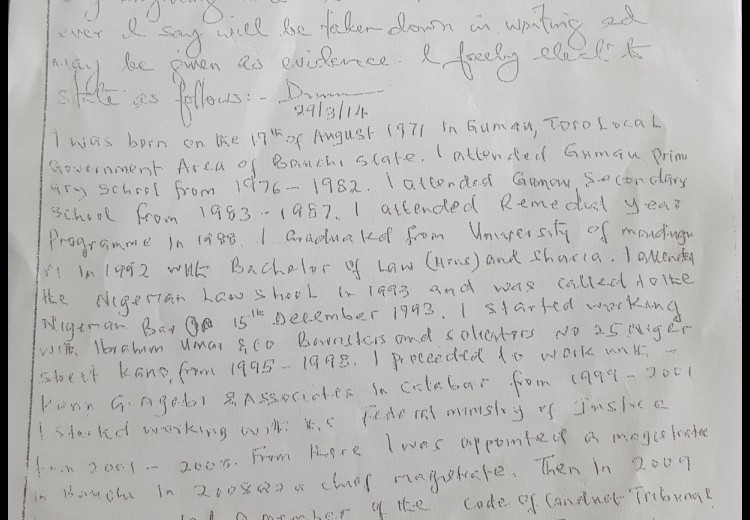 ever I say will be taken down in writing and
may be given as evidence. I freely elect to
state as follows:-
29/3/14
I was born on the 17th of August 1971 in Gumau, Toro Local
Government Area of Bauchi State. I attended Gumau prim
ary school from 1976 - 1982. I attended Gumau, Secondary
School from 1983 - 1987. I attended Remedial year
Programme in 1988. I Graduated from University of maidugu
ri in 1992 with Bachelor of Law (Hons) and Sharia. I attended
the Nigerian Law School in 1993 and was called to the
Nigerian Bar on 15th December 1993. I started working
with Ibrahim Umar & Co Barristers and solicitors No 25 Niger
street Kano, from 1995 - 1998. I proceeded to work with
G. Agabi & Associates in Calabar from 1999 - 2001
I started working with the Federal ministry of Justice
from 2001 - 2005. From there I was appointed a magistrate
in Bauchi in 2008 as a chief magistrate. Then in 2009
a member of the Code of Conduct Tribunal